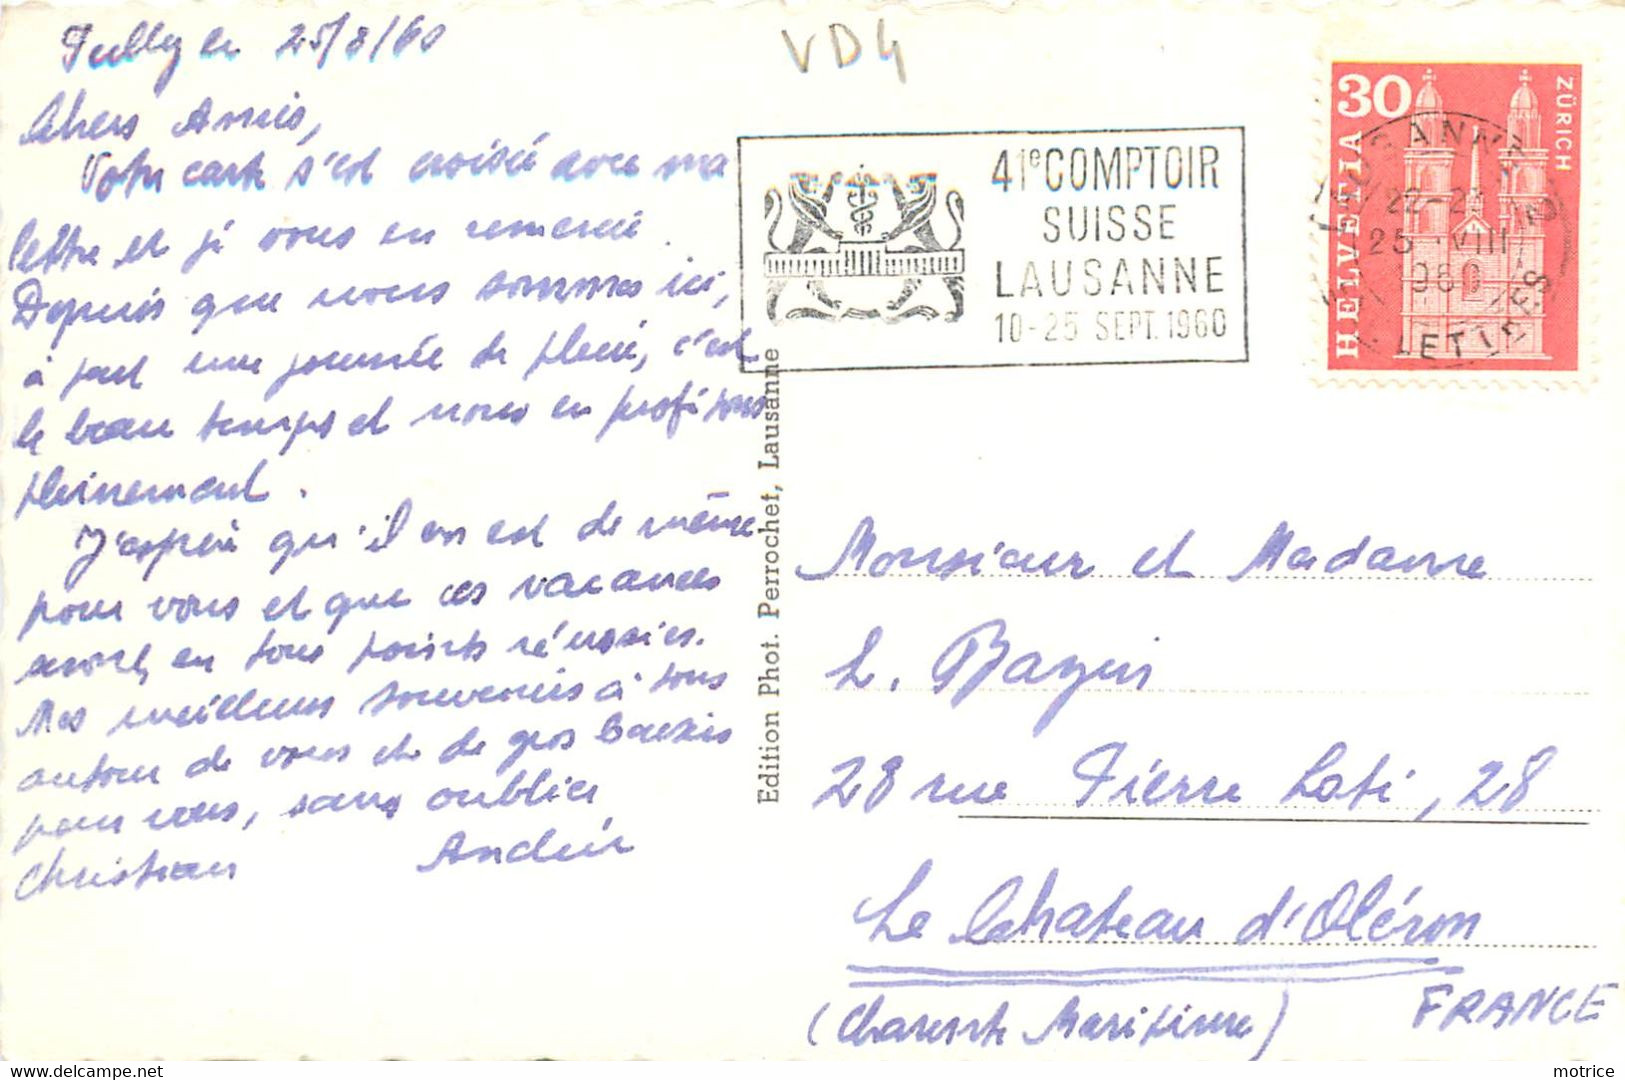 Pully le 25/8/60
Chers Amis,
Votre carte s'est croisée avec ma
lettre et je vous en remercie.
Depuis que nous sommes ici,
à part une journée de pluie, c'est
le beau temps et nous en profitons
pleinement.
J'espère qu'il en est de même
pour vous et que ces vacances
seront en tous points réussies.
Mes meilleurs souvenirs à tous
autour de vous et de gros baisers
pour vous, sans oublier
Christian Andrée
VD4
41e COMPTOIR
SUISSE
LAUSANNE
10-25 SEPT. 1960
30
HELVETIA
ZÜRICH
LAUSANNE
22-
25 VIII
1960
LETTRES
Edition Phot. Perrochet, Lausanne
Monsieur et Madame
L.
28 rue Pierre Loti, 28
Le Château d'Oléron
(Charente Maritime) FRANCE
motrice